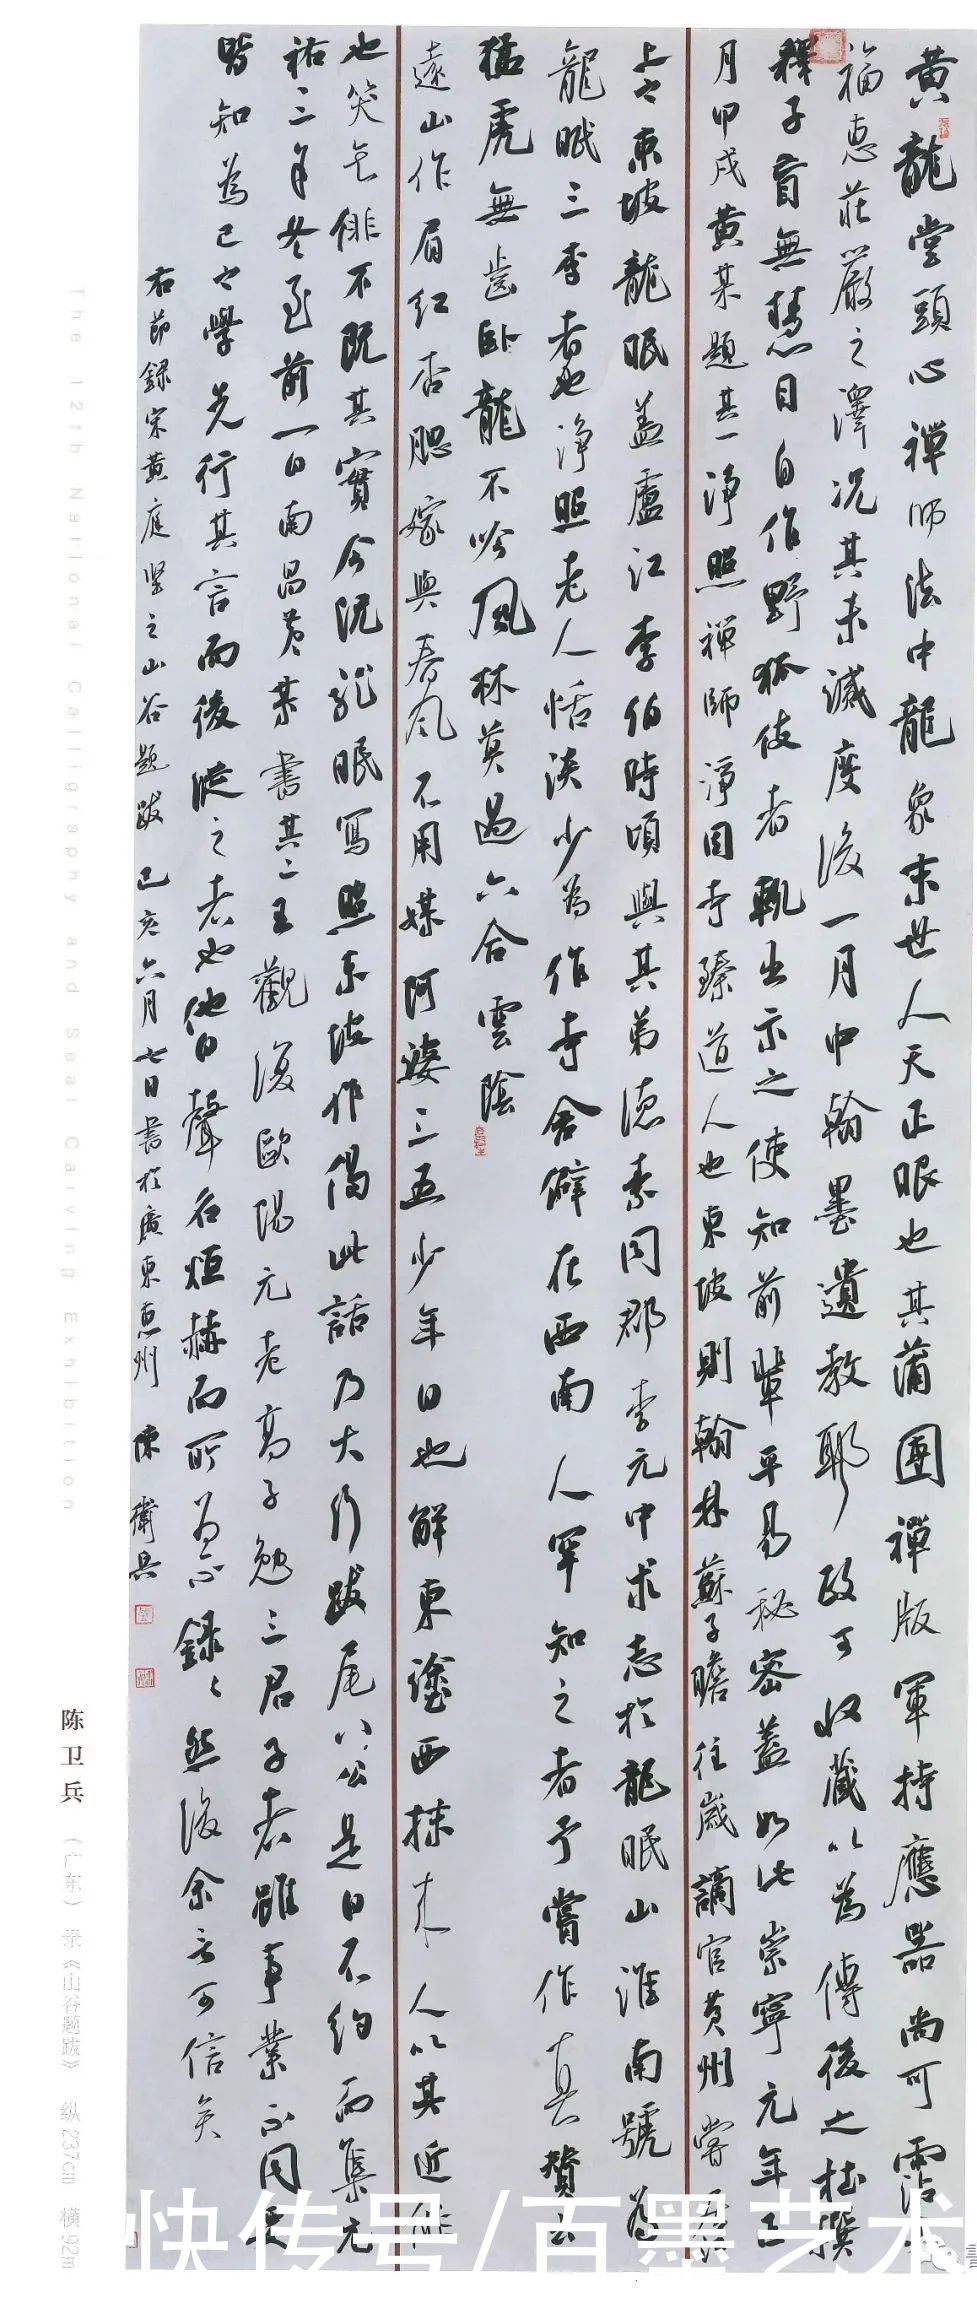 黃龍堂頭心禪師法中龍象末世人天正眼也其蒲團禪版軍持應器尚可霑
福惠莊嚴之澤況其未滅度後一月中翰墨遺教耶政可收藏以為傳後之
釋子盲無慧目自作野狐伎者輒出示之使知前輩平易秘密蓋如此崇寧元年正
月甲戌黃某題其一淨照禪師淨因寺臻道人也東坡則翰林蘇子瞻往歲謫官黃州嘗
上之東坡龍眠蓋廬江李伯時頃與其弟德素同郡李元中求志於龍眠山淮南號為
龍眠三李者也淨照老人恬淡少為作寺舍僻在西南人罕知之者予嘗作真贊云
猛虎無齒臥龍不吟風林莫過六合雲陰
遠山作眉紅杏腮嫁與春風不用媒阿婆三五少年日也解東塗西抹來人以其近俳
也笑之俳不既其實今況龍眠寫照東坡作偈此話乃大行跋尾八公是日不約而集元
祐三年冬至前一日南昌黃某書其二王觀復歐陽元老高子勉三君子者雖事業不同要
皆知為己之學先行其言而後從之者也他日聲名烜赫而所為不錄錄然後余言可信矣
右節錄宋黃庭堅之山谷題跋 己亥六月七日書於廣東惠州 陳衛兵
The 12th National Calligraphy and Seal Carving Exhibition
陈卫兵 (广东) 录《山谷题跋》 纵237cm 横92m
快传号/百墨艺术